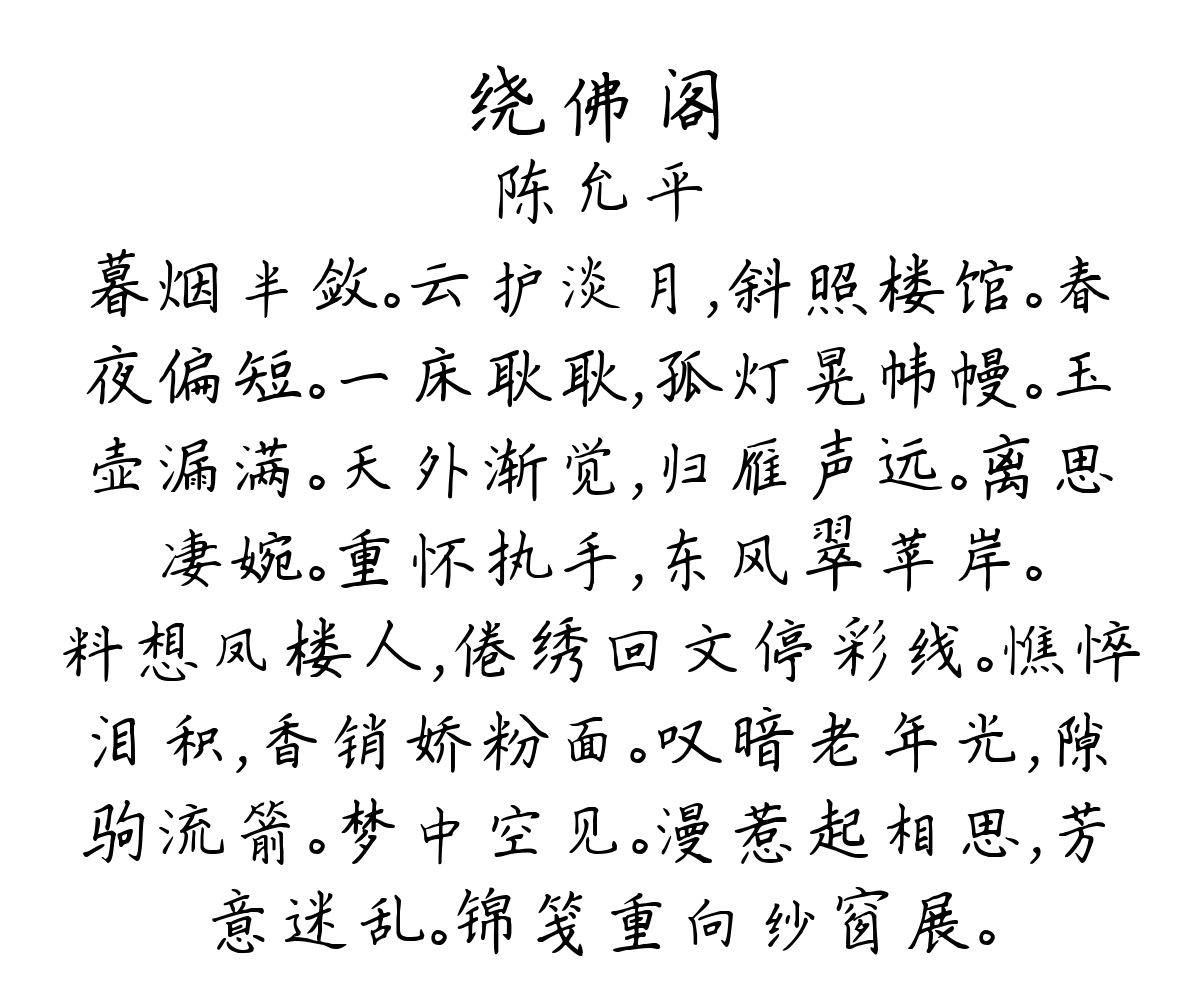 绕佛阁
陈允平
暮烟半敛。云护淡月,斜照楼馆。春
夜偏短。一床耿耿,孤灯晃帏幔。玉
壶漏满。天外渐觉,归雁声远。离思
凄婉。重怀执手,东风翠苹岸。
料想凤楼人,倦绣回文停彩线。憔悴
泪积,香销娇粉面。叹暗老年光,隙
驹流箭。梦中空见。漫惹起相思,芳
意迷乱。锦笺重向纱窗展。